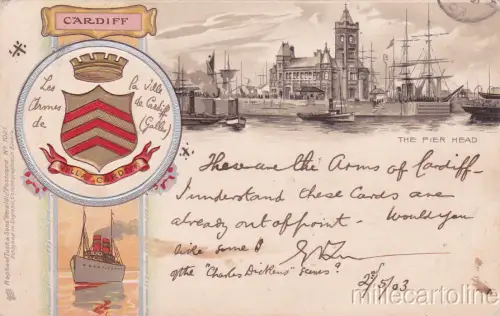 CARDIFF
Les Armes de
la ville de Cardiff (Galles)
VILLA CARDIFF
THE PIER HEAD
These are the Arms of Cardiff -
I understand these Cards are
already out of print. Would you
like some
of the "Charles Dickens" Series?
2/5/03
Raphael Tuck & Sons
millecartoline